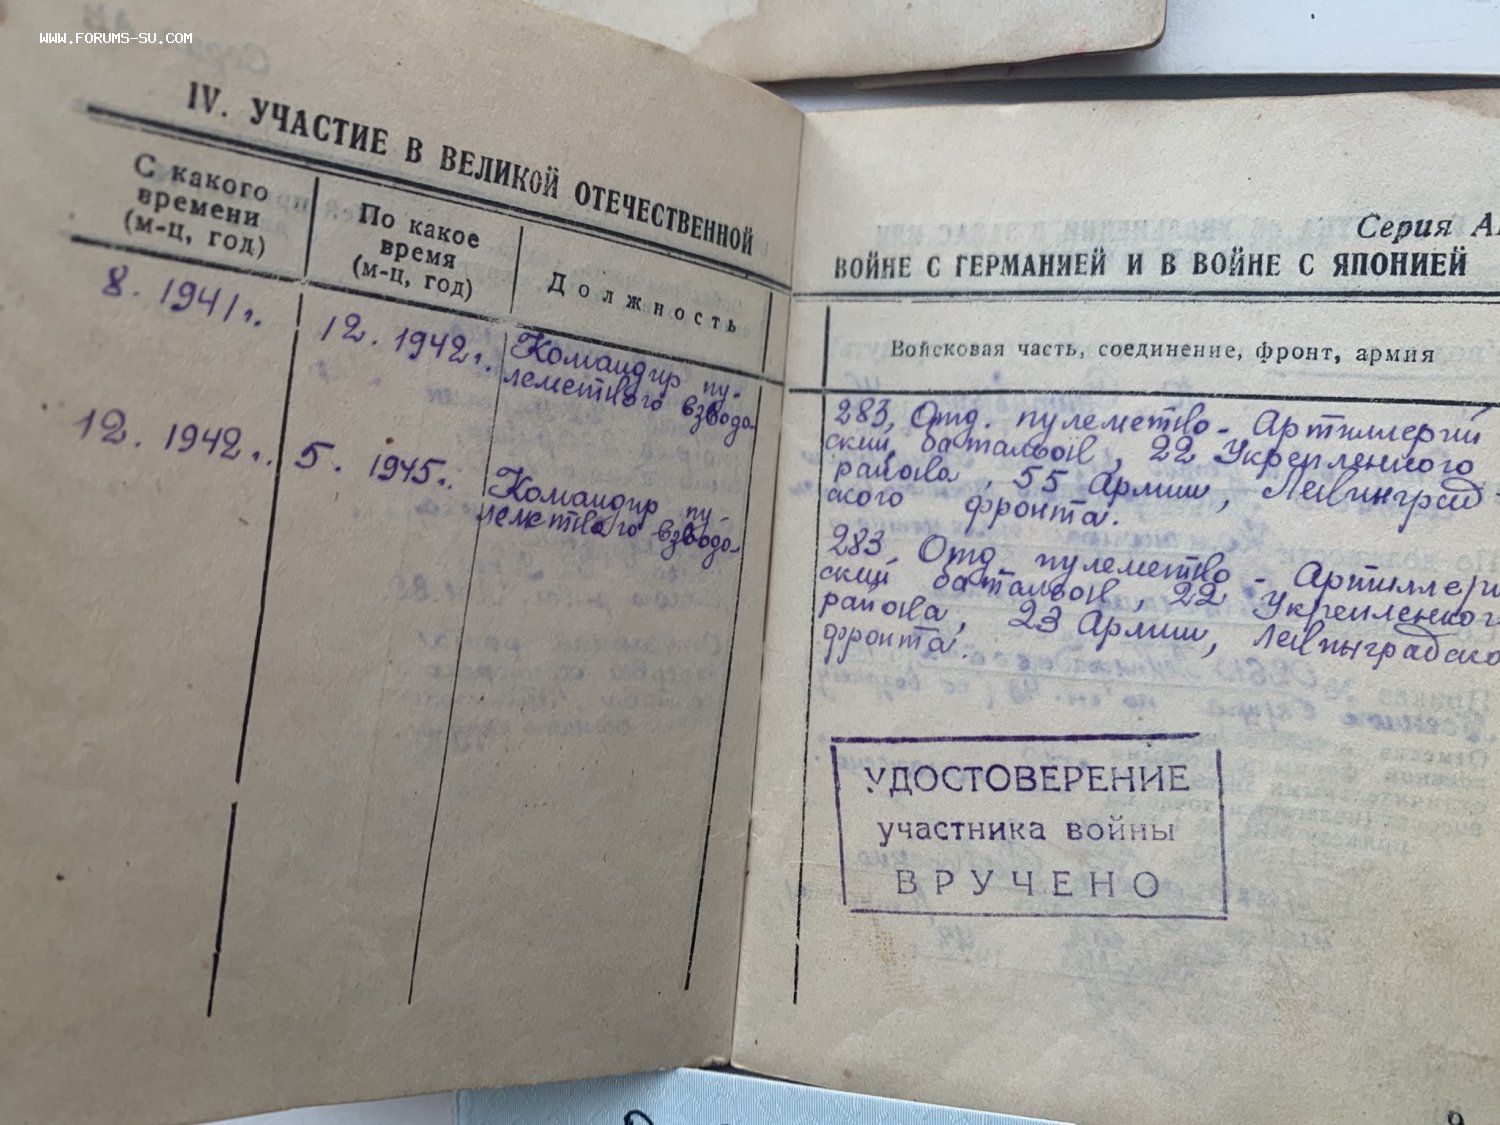 WWW.FORUMS-SU.COM
IV. УЧАСТИЕ В ВЕЛИКОЙ ОТЕЧЕСТВЕННОЙ
С какого времени (м-ц, год)
По какое время (м-ц, год)
Должность
8. 1941 г.
12. 1942 г.
Командир пу-
леметного взвода
12. 1942 г.
5. 1945 г.
Командир пу-
леметного взвода
Серия
ВОЙНЕ С ГЕРМАНИЕЙ И В ВОЙНЕ С ЯПОНИЕЙ
Войсковая часть, соединение, фронт, армия
283, Отд. пулеметно - Артиллерий
ский батальон, 22 Укрепленного
района, 55 Армии, Ленинград-
ского фронта.
283, Отд пулеметно - Артиллери
ский батальон, 22 Укрепленного
района, 23 Армии, Ленинградско
фронта.
УДОСТОВЕРЕНИЕ
участника войны
ВРУЧЕНО